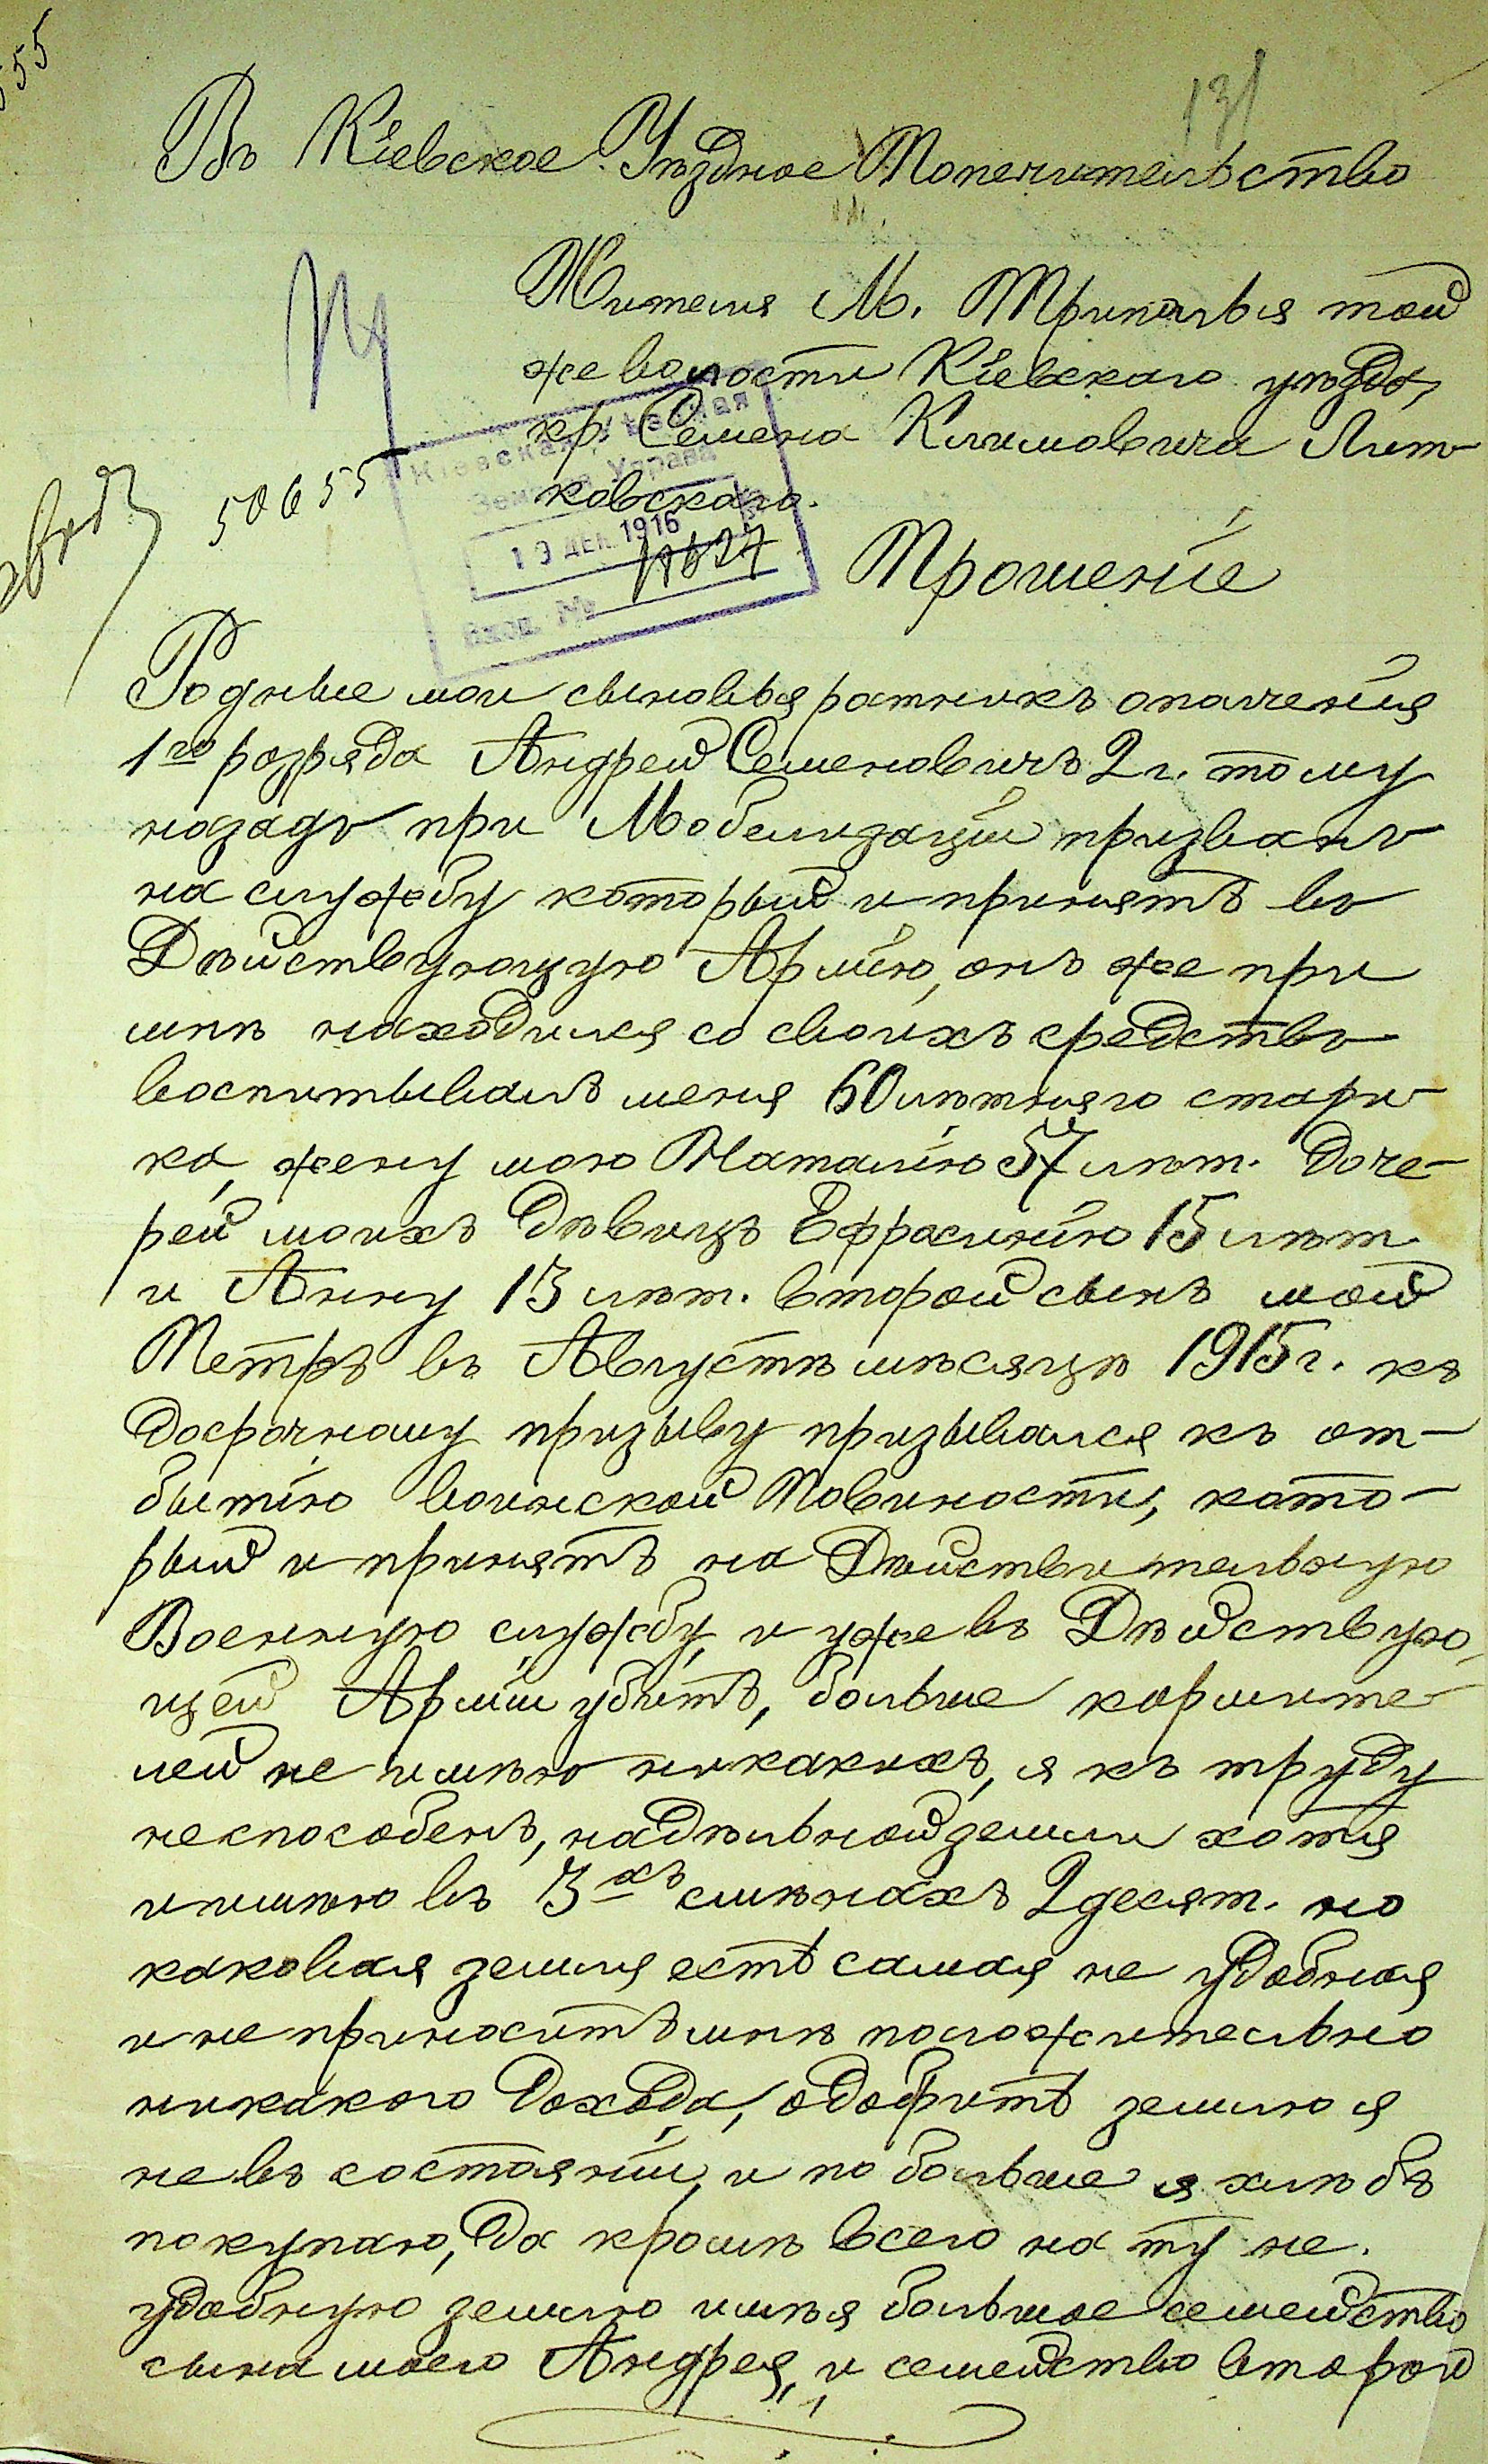 131
Въ Кіевское Уѣздное Попечительство
Жителя М. Триполья той
же волости Кіевскаго уѣзда,
кр. Семена Климовича Лит-
ковскаго.
50655
Кіевская Уѣздная
Земская Управа
19 ДЕК. 1916
Вход. №
Прошеніе
Родные мои сыновья ратникъ ополченія
1го розряда Андрей Семеновичъ 2 г. тому
назадъ при Мобелизаціи призванъ
на службу который и принятъ въ
Дѣйствующую Армію, онъ же при
мнѣ находился со своихъ средствъ
воспитывалъ меня 60 лѣтняго стари-
ка, жену мою Наталію 57 лѣт. Доче-
рей моихъ Дѣвицъ Ефросинію 15 лѣт.
и Анну 13 лѣт. второй сынъ мой
Петръ въ Августѣ мѣсяцѣ 1915 г. къ
досрочному призыву призывался къ от-
бытію воинской Повиности, кото-
рый и принятъ на Дѣйствительную
Военную службу, и уже въ Дѣйствую-
щей Арміи убитъ, больше кормите-
лей не имѣю никакихъ, я къ труду
неспособенъ, надѣльной земли хотя
и имѣю въ 3хъ смѣнахъ 2 десят. но
каковая земля есть самая не удобная
и не приноситъ мнѣ положительно
никакого Дохода, одобрить землю я
не въ состояніи, и по больше я хлѣбъ
покупаю, Да кромѣ всего на ту не.
удобную землю имѣя большое семейство
сына моего Андрея, и семейство второй